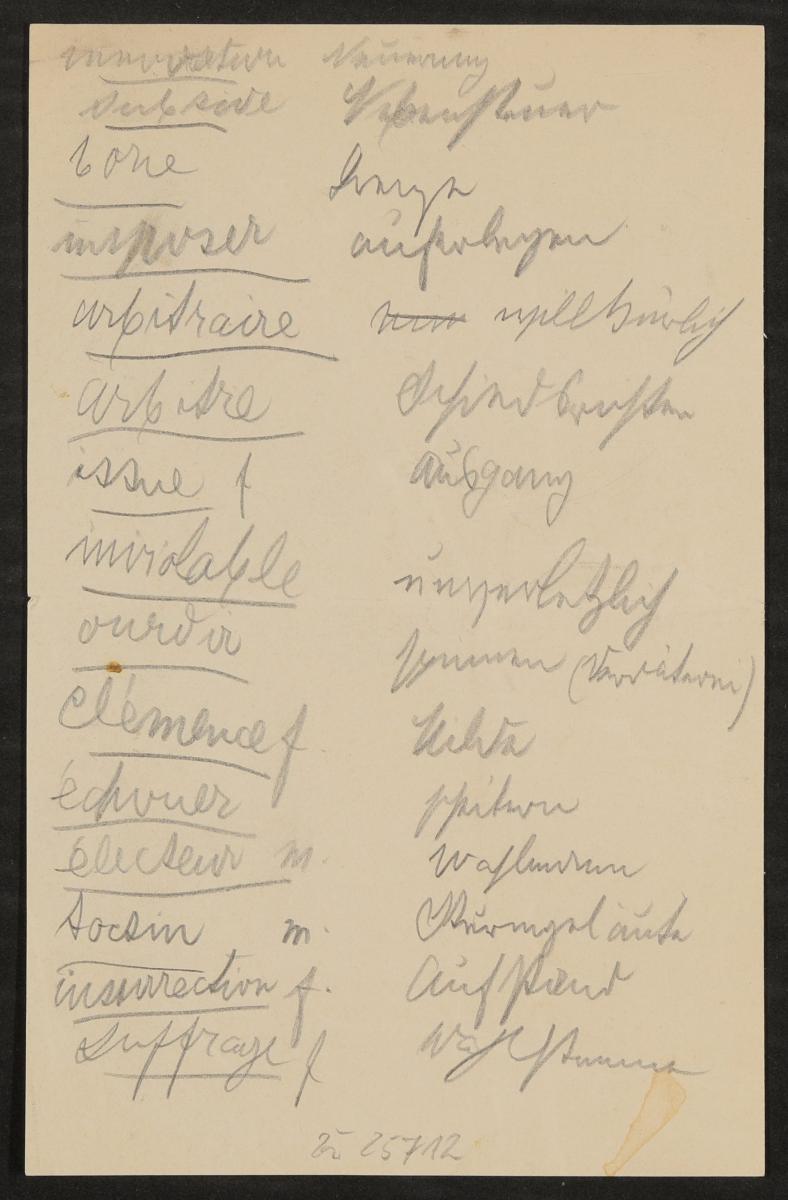 innovation Neuerung
subside Nebensteuer
borne Grenze
imposer auferlegen
arbitraire willkürlich
arbitre Schiedsrichter
issue f Ausgang
inviolable unverletzlich
ourdir spinnen (Verräterei)
clémence f Milde
échouer scheitern
électeur m. Wahlmann
tocsin m. Sturmgeläute
insurrection f. Aufstand
suffrage f Wahlstimme
zu 25712